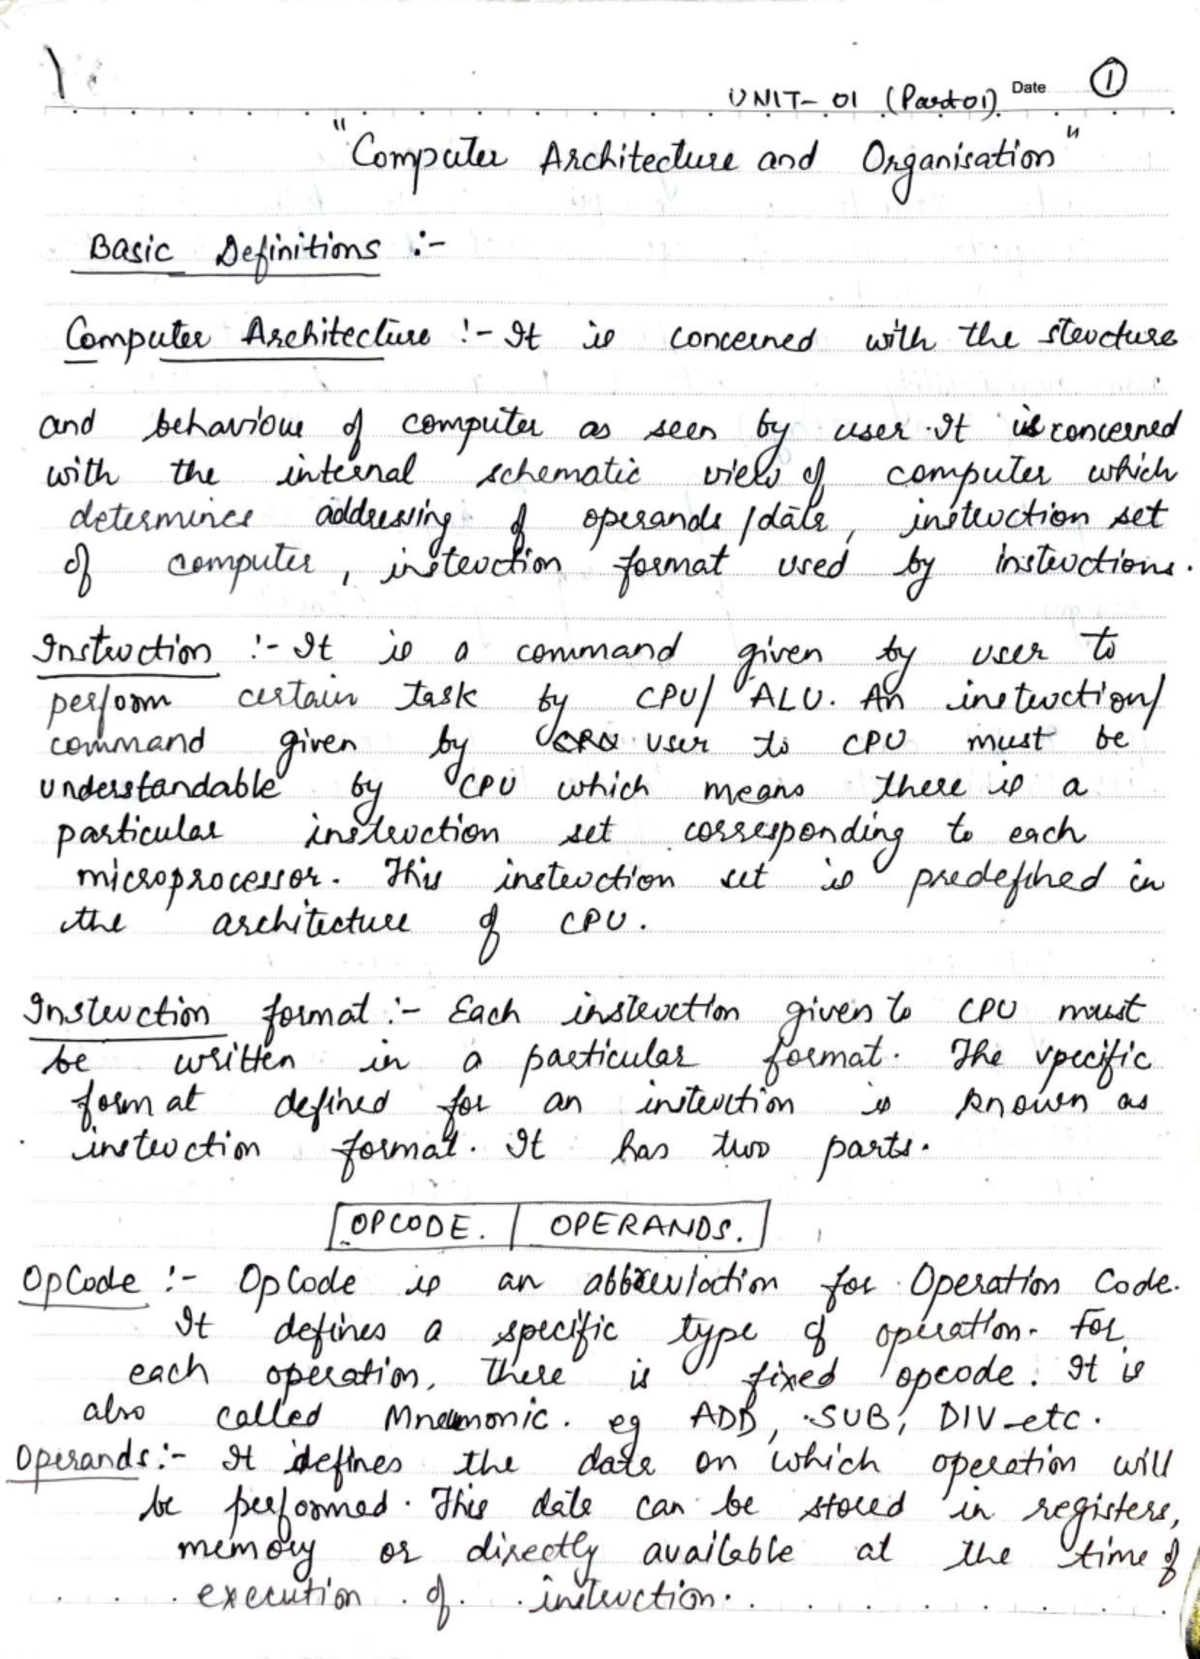 UNIT- 01 (Part01) Date ①
"Computer Architecture and Organisation"
Basic Definitions :-
Computer Architecture :- It is concerned with the structure
and behaviour of computer as seen by user. It is concerned
with the internal schematic view of computer which
determines addressing of operands/data, instruction set
of computer, instruction format used by instructions.
Instruction :- It is a command given by user to
perform certain task by CPU/ ALU. An instruction/
command given by user to CPU must be
understandable by CPU which means there is a
particular instruction set corresponding to each
microprocessor. This instruction set is predefined in
the architecture of CPU.
Instruction format :- Each instruction given to CPU must
be written in a particular format. The specific
format defined for an instruction is known as
instruction format. It has two parts.
OPCODE. | OPERANDS.
OpCode :- OpCode is an abbreviation for Operation Code.
It defines a specific type of operation. For
each operation, there is fixed opcode. It is
also called Mneumonic. eg ADD, SUB, DIV etc.
Operands :- It defines the data on which operation will
be performed. This data can be stored in registers,
memory or directly available at the time of
execution of instruction.